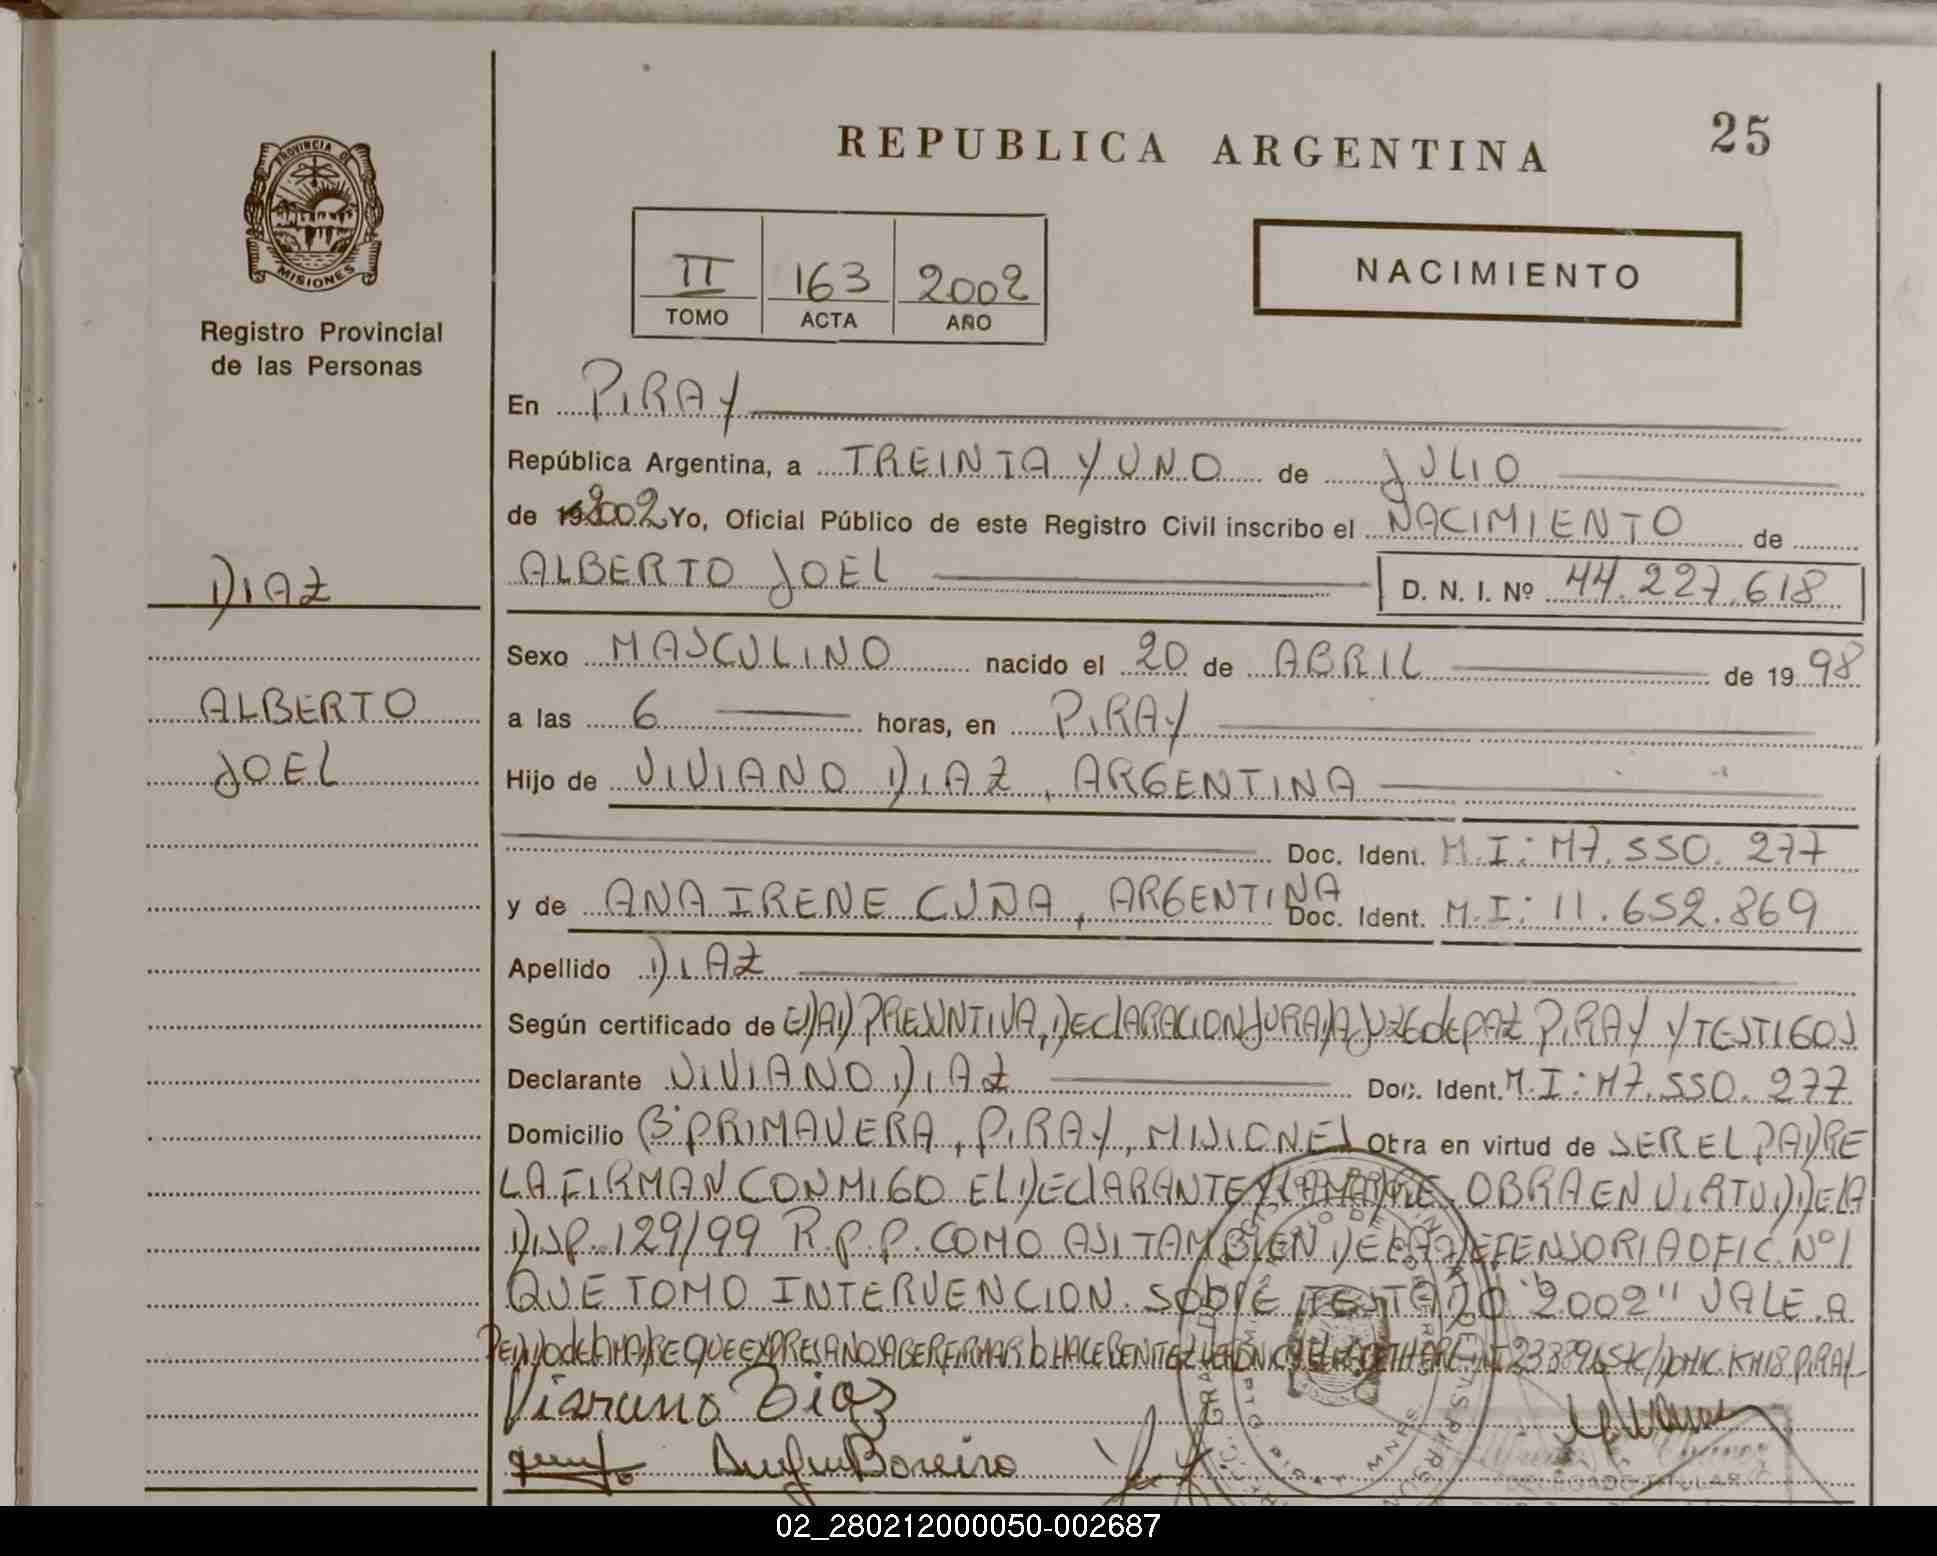 PROVINCIA DE
MISIONES
Registro Provincial
de las Personas
DIAZ
ALBERTO
JOEL
REPUBLICA ARGENTINA
25
II 163 2002
TOMO ACTA AÑO
NACIMIENTO
En PIRAY
República Argentina, a TREINTA Y UNO de JULIO
de 19 2002 Yo, Oficial Público de este Registro Civil inscribo el NACIMIENTO de
ALBERTO JOEL D. N. I. Nº 44.227.618
Sexo MASCULINO nacido el 20 de ABRIL de 19 98
a las 6 horas, en PIRAY
Hijo de VIVIANO DIAZ, ARGENTINA
Doc. Ident. M.I: M7.550.277
y de ANA IRENE CUÑA, ARGENTINA Doc. Ident. M.I: 11.652.869
Apellido DIAZ
Según certificado de EDAD PRESUNTIVA, DECLARACION JURADA JUZG de PAZ PIRAY Y TESTIGOS
Declarante VIVIANO DIAZ Doc. Ident. M.I: M7.550.277
Domicilio Bº PRIMAVERA, PIRAY, MISIONES Otra en virtud de SER EL PADRE
LA FIRMAN CONMIGO EL DECLARANTE Y LA MADRE. OBRA EN VIRTUD DE LA
DISP. 129/99 R.P.P. COMO ASI TAMBIEN DE LA DEFENSORIA OFIC. Nº 1
QUE TOMO INTERVENCION. SOBRE TESTADO "2002" VALE. A
PEDIDO de la MADRE QUE EXPRESA NO SABER FIRMAR lo HACE BENITEZ VERONICA ELIZABETH ARG. KM 18 PIRAY
Viviano Diaz
Boreiro
02_280212000050-002687